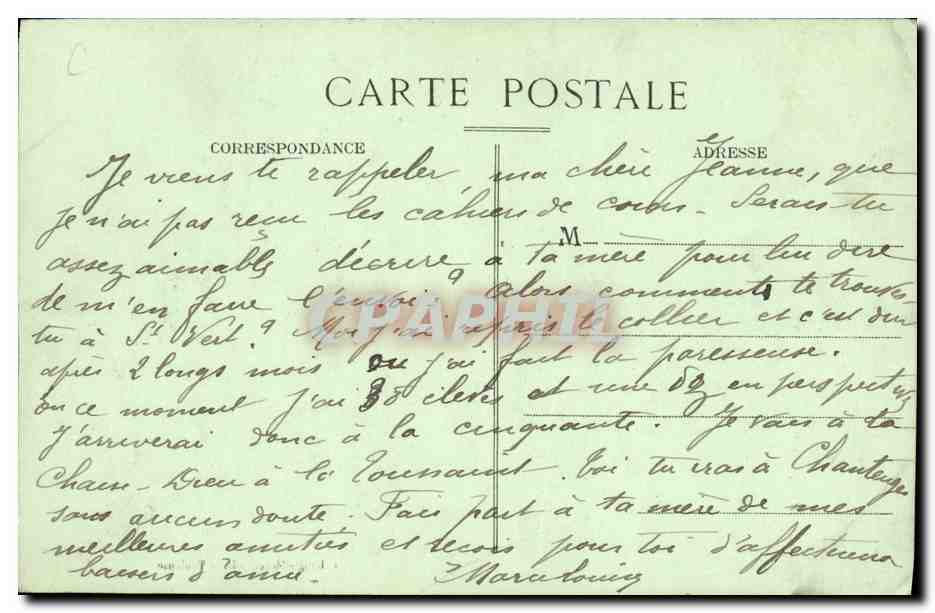 CARTE POSTALE
CORRESPONDANCE
ADRESSE
Je viens te rappeler, ma chère Jeanne, que
je n'ai pas reçu les cahiers de cours. Serais-tu
M
assez aimable d'écrire à ta mère pour lui dire
de m'en faire l'envoi? Alors comment te trouves-
tu à St Vert? Moi j'ai repris le collier et c'est dur
CPAPHIL
après 2 longs mois où j'ai fait la paresseuse.
en ce moment j'ai 38 élèves et une dz en perspective
J'arriverai donc à la cinquante. Je vais à La
Chaise-Dieu à la Toussaint. Toi tu iras à Chanteuges
sans aucun doute. Fais part à ta mère de mes
meilleures amitiés et reçois pour toi d'affectueux
baisers d'amie. Marie Louise